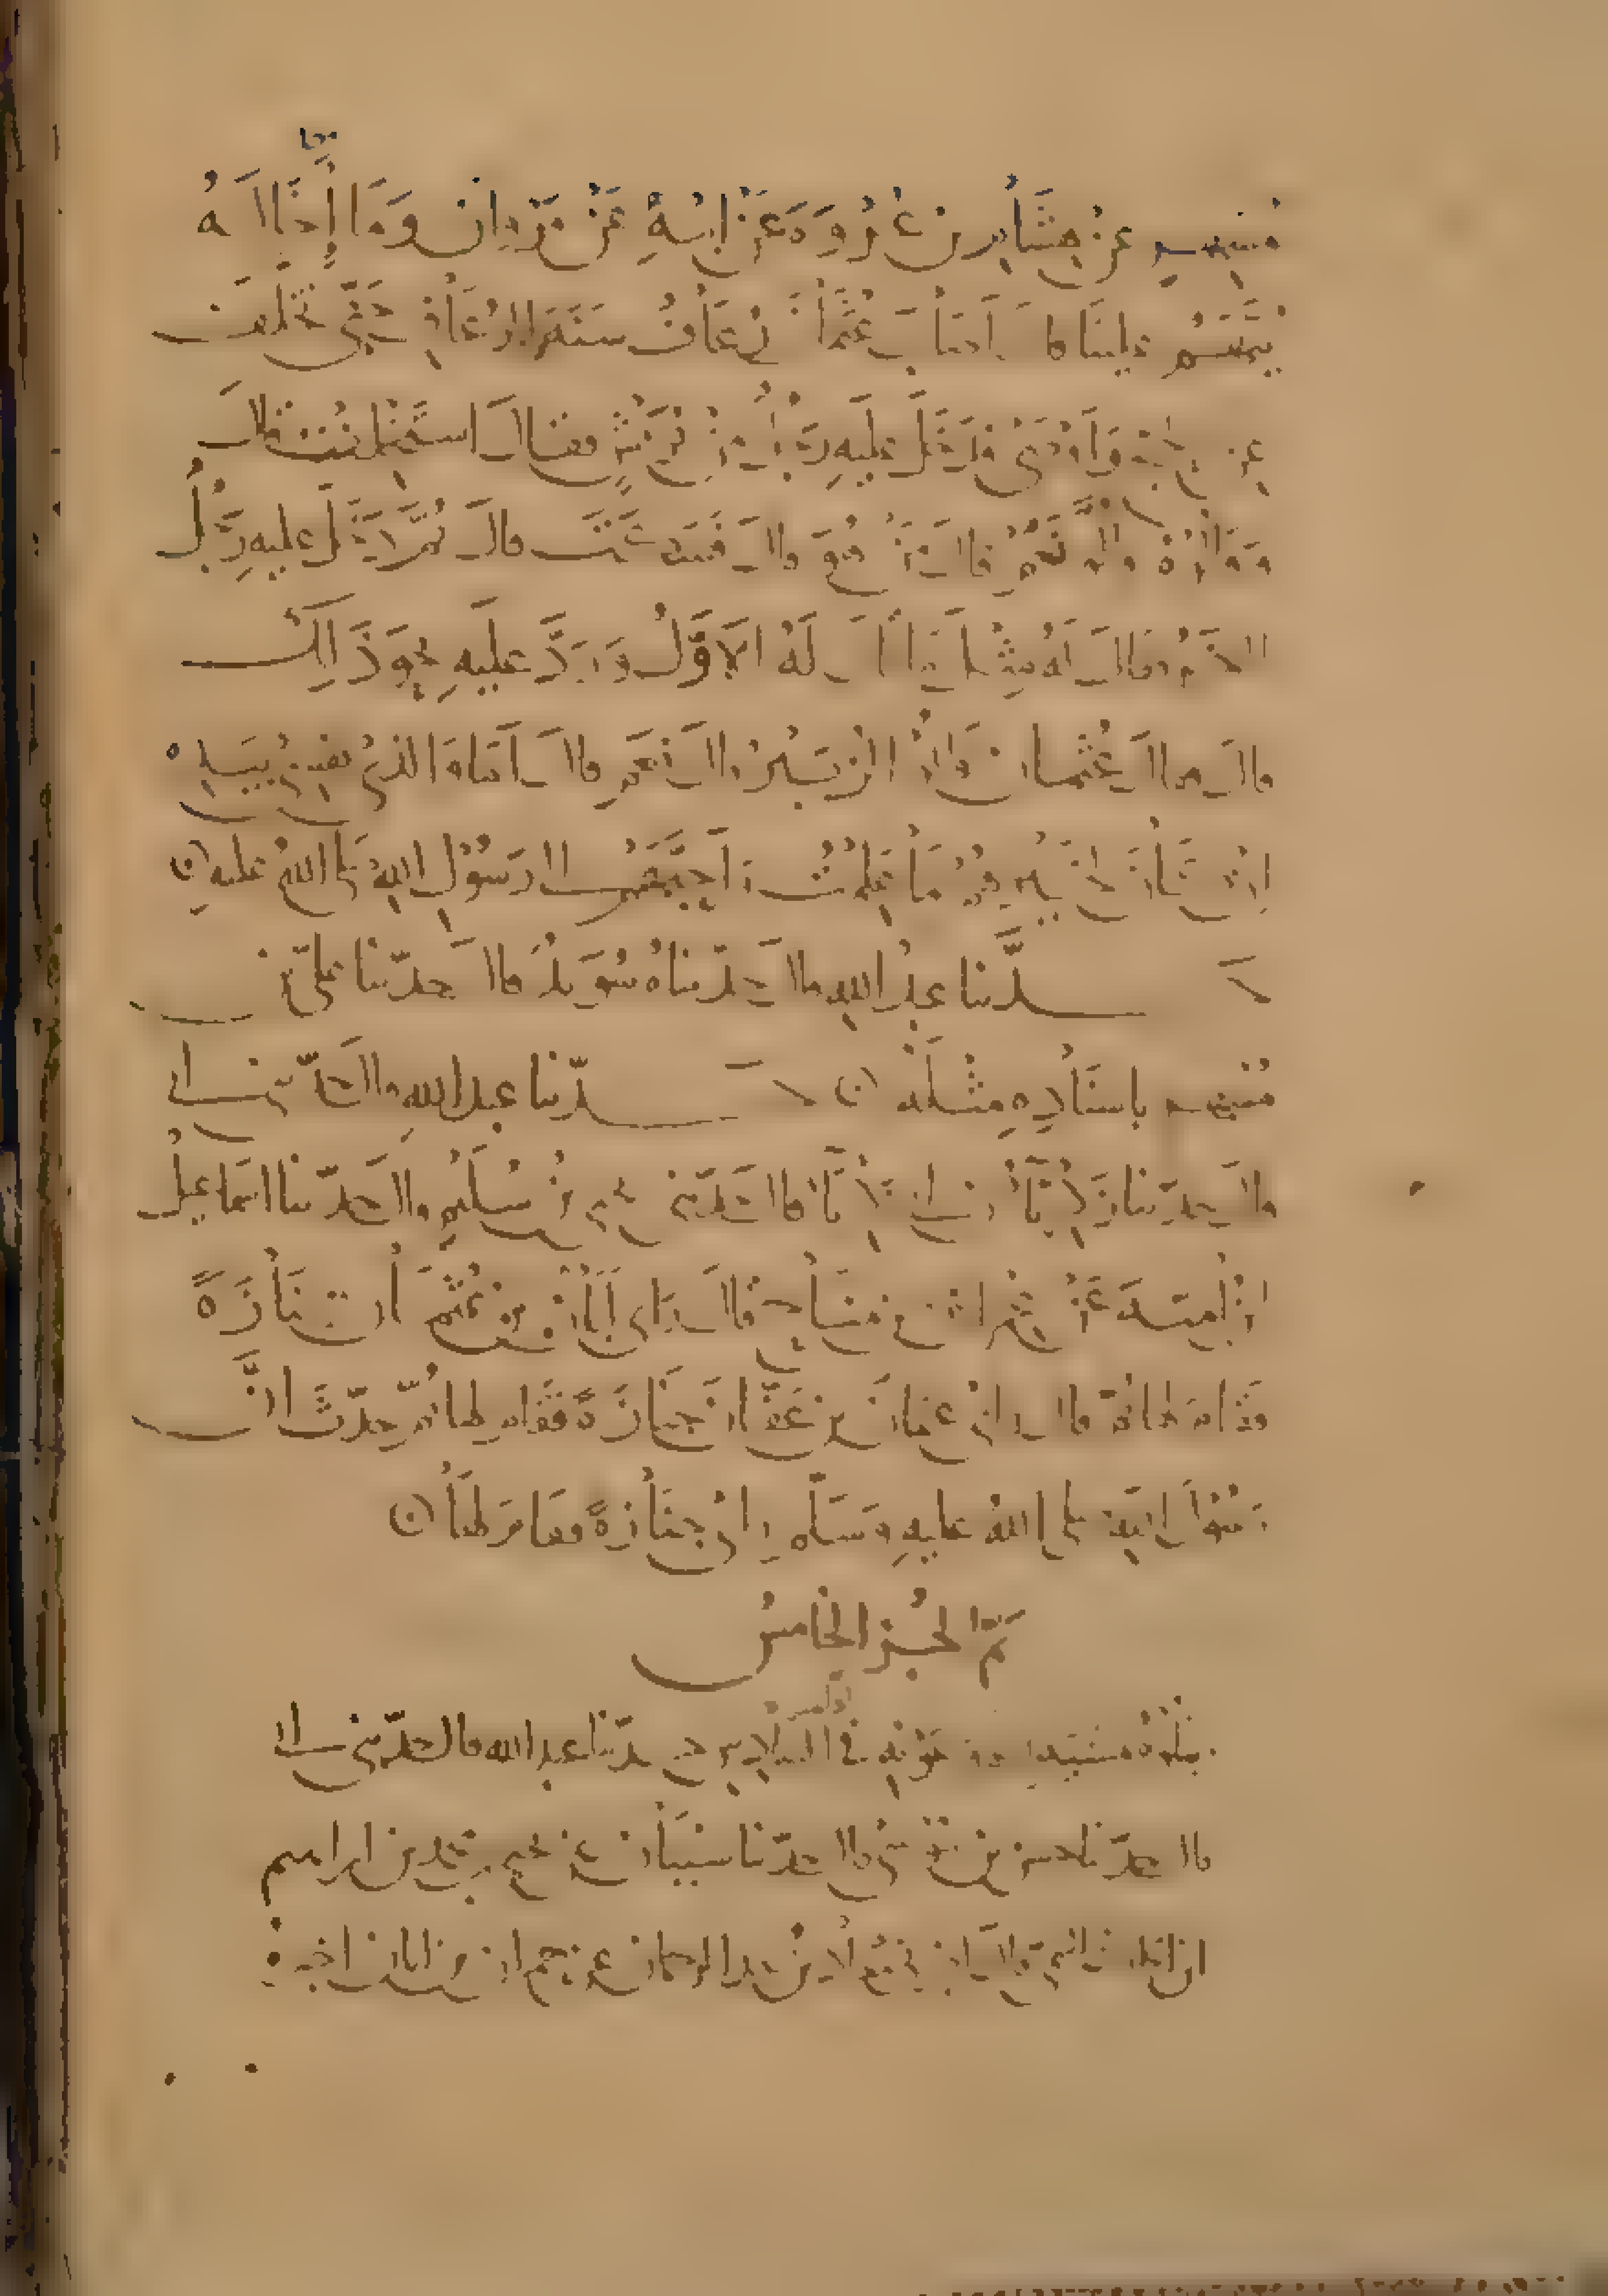 مسهر عن هشام بن عُروَةَ عَن ابيهِ عَن مَروان وَمَا إِخَالُهُ
يُتَّهَمُ علينا قالَ اصَابَ عُثمانَ رُعَافٌ سَنَةَ الرُّعَافِ حَتَّى تخَلَّفَ
عن الحج وَاَوْصَى فدَخَلَ عليهِ رَجُلٌ مِن قُرَيْشٍ فقالَ استَخْلِفْ قالَ
وَقَالُوهُ قالَ نَعَمْ قالَ مَنْ هُوَ قالَ فَسَكَتَ قالَ ثُمَّ دَخَلَ عليهِ رَجُلٌ
اخَرُ فقالَ لَهُ مِثْلَ مَا قالَ لَهُ الاَوَّلُ وَرَدَّ عليَهِ نحوَ ذَالِكَ
قالَ فقالَ عُثمان قَالُوا الزُّبَيْرُ قالَ نَعَم قالَ اَمَا وَالذي نفسِي بيَدِهِ
اِنْ كَانَ لخَيْرَهُم مَا عَلِمْتُ وَاَحَبَّهُم الى رَسُوْلِ اللهِ صَلى اللهُ عليهِ
حدَّثنا عبدُ اللهِ قالَ حدّثناهُ سُوَيدٌ قالَ حدّثنا عليّ بن
مُسْهر باسنَادِهِ مِثْلَهُ حدّثنا عبدالله قالَ حدّثني ابي
قالَ حدّثنا زَكَرِيَّا بن ابي زَكَرِيَّا قالَ حَدّثني يحيى بن سُلَيْمٍ قالَ حَدّثنا اسمَاعيلُ
ابنُ اُميّةَ عَنْ عِمْران بن منَّاحٍ قالَ رَاى اَبَانُ بن عُثْمَان جِنَازَةً
فقَامَ لهَا وَقالَ رَاى عثمانُ بن عَفَّانَ جِنَازَةً فقَامَ لهَا ثمّ حدّثَ انَّ
رَسُوْلَ اللهِ صَلى اللهُ عليهِ وَسَلّم رَاى جِنَازةً فقَامَ لهَا
تمّ الجُزء الخَامسُ
يتلُوهُ حدّثنا عبدالله قالَ حدّثني ابي
قالَ حدّثنا حسن بن موسى قالَ حدّثنا شيبَان عن يحيى عن محمد بن ابراهيم